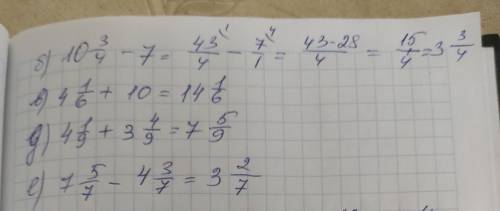 б) 10 3/4 - 7 = 43/4 - 7/1 = 43-28/4 = 15/4 = 3 3/4
в) 4 1/6 + 10 = 14 1/6
д) 4 1/9 + 3 4/9 = 7 5/9
е) 7 5/7 - 4 3/7 = 3 2/7